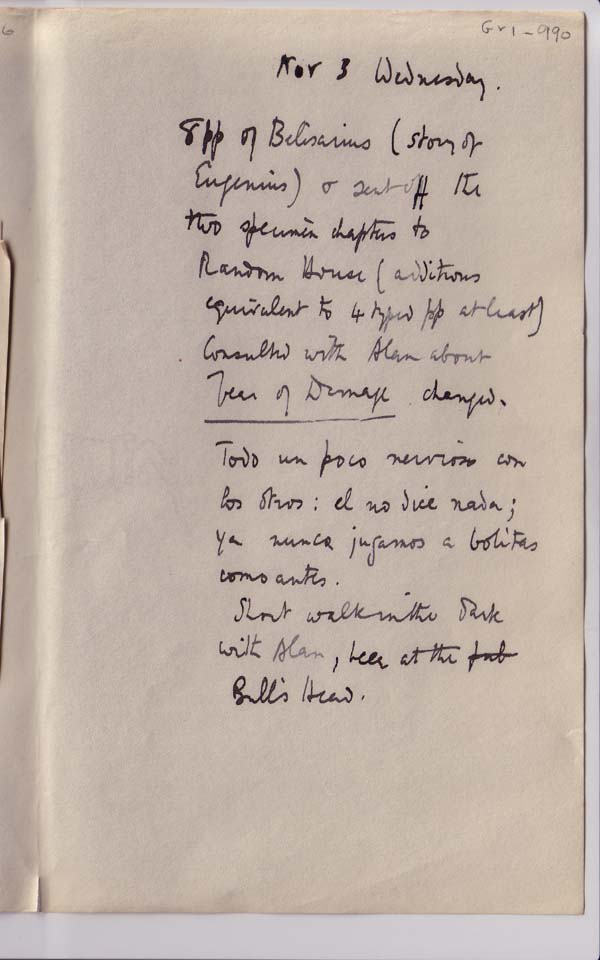 6
Gr1-990
Nov 3 Wednesday.
8pp of Belisarius (story of
Eugenius) & sent off the
two specimen chapters to
Random House (additions
equivalent to 4 typed pp at least)
Consulted with Alan about
Year of Damage changed.
Todo un poco nervioso con
los otros: el no dice nada;
ya nunca jugamos a bolitas
como antes.
Short walk in the dark
with Alan, beer at the pub
Bull's Head.